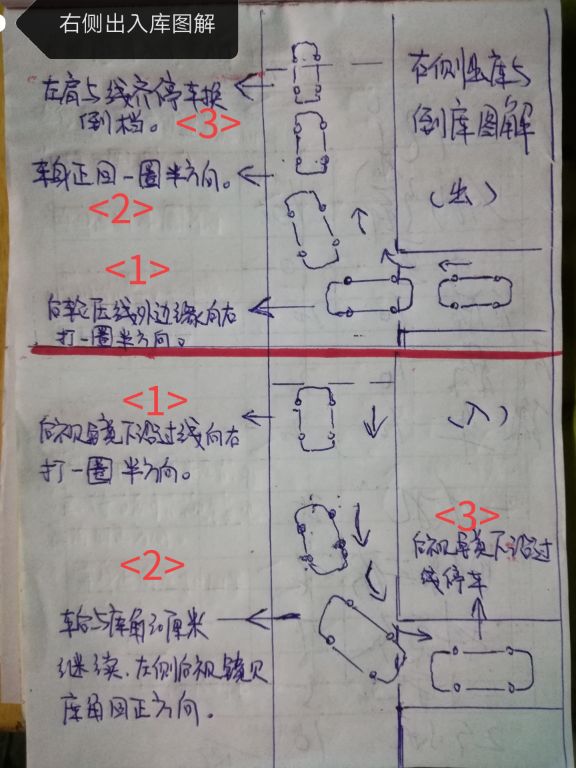 右侧出入库图解
右侧出库与
倒库图解
(出)
左肩与线齐停车换
倒档。
<3>
车身正回一圈半方向。
<2>
<1>
后轮压线外边缘向右
打一圈半方向。
<1>
后视镜下沿过线向右
打一圈半方向。
(入)
<3>
后视镜下沿过
线停车
<2>
车台与库角30厘米
继续.左侧后视镜见
库角回正方向。